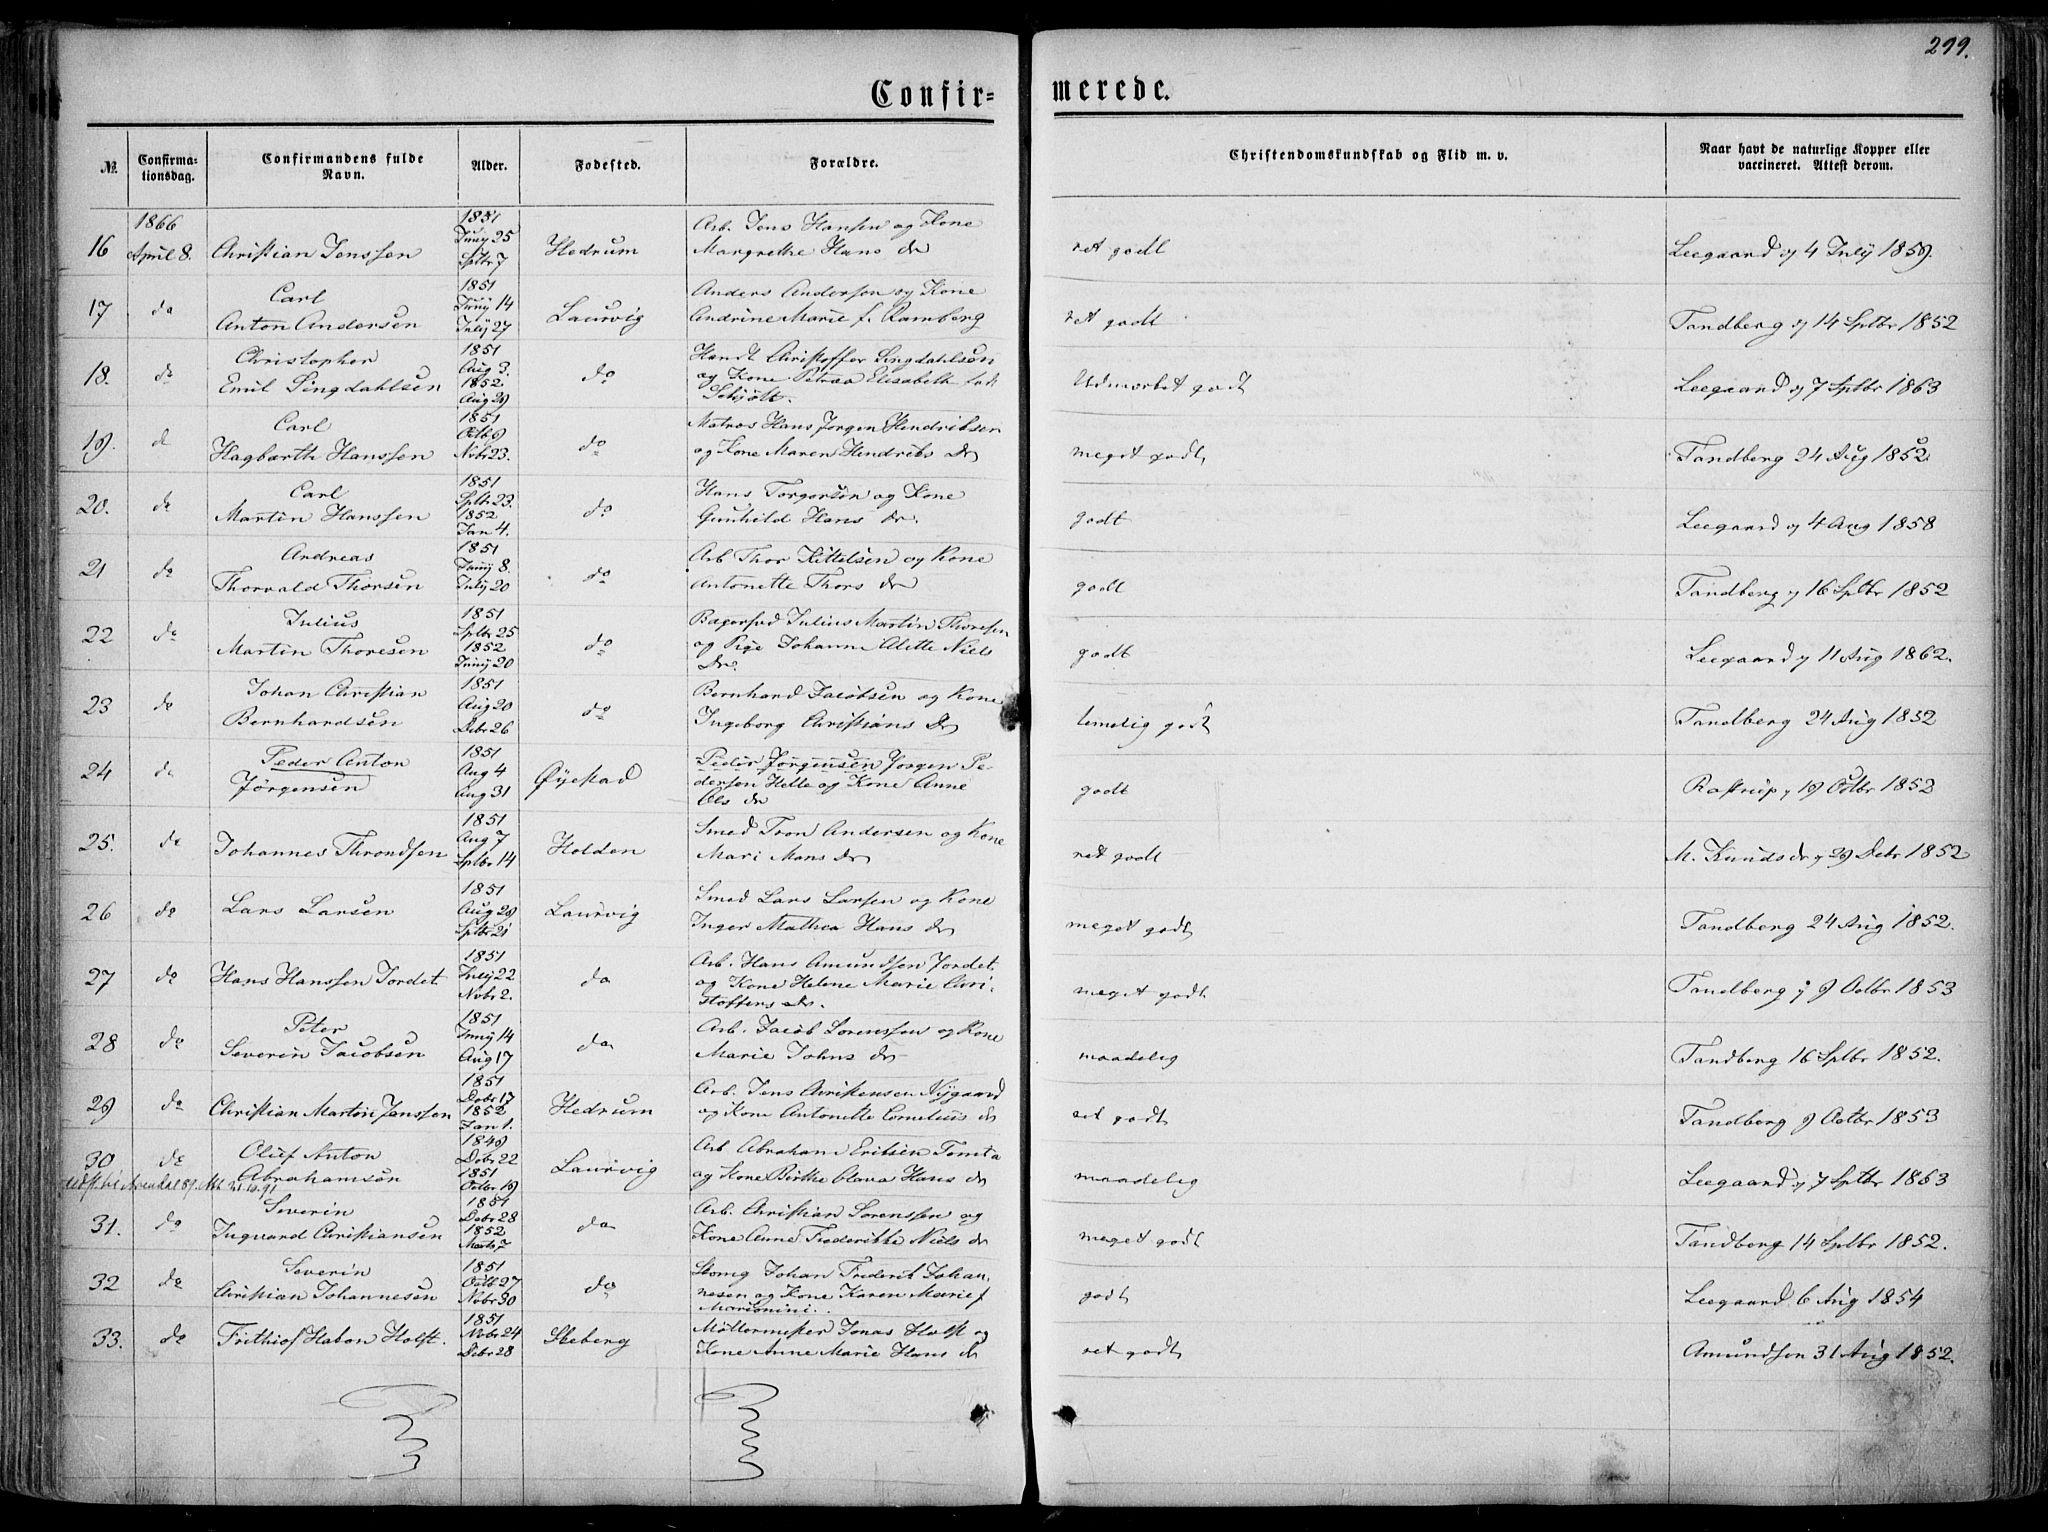 299.
Confir-
merede.
No.
Confirma-
tionsdag.
Confirmandens fulde
Navn.
Alder.
Fødested.
Forældre.
Christendomskundskab og Flid m. v.
Naar havt de naturlige Kopper eller
vaccineret. Attest derom.
1866
16 April 8. Christian Jenssen
1851
Juny 25
Sptbr 7
Hedrum
Arb. Jens Hansen og Kone
Margrethe Hans dr
ret godt
Leegaard 4 July 1859.
17 do
Carl
Anton Andersen
1851
Juny 14
July 27
Laurvig
Anders Anderson og Kone
Andrine Marie f. Ramberg
ret godt
Tandberg 14 Sptbr 1852
18. do
Christopher
Emil Lingdahlsen
1851
Aug 3.
1852.
Aug 29
do
Handl Christoffer Lingdahlsen
og Kone Petraa Elisabeth født
Schjøtt.
Udmærket godt
Leegaard 7 Sptbr 1863
19. do
Carl
Hagbarth Hanssen
1851
Octb 9
Nvbr 23.
do
Matros Hans Jørgen Hendriksen
og Kone Maren Hendriks Dr
meget godt
Tandberg 24 Aug 1852.
20. do
Carl
Martin Hanssen
1851
Sptbr 23.
1852
Jan 4.
do
Hans Torgersen og Kone
Gunhild Hans dr.
godt
Leegaard 4 Aug 1858
21 do
Andreas
Thorvald Thorsen
1851
Juny 8.
July 20
do
Arb Thor Kittelsen og Kone
Antonette Thors dr
godt
Tandberg 16 Sptbr 1852
22 do
Julius
Martin Thoresen
1851
Sptbr 25
1852
Juny 20
do
Bagersvd Julius Martin Thoresen
og Pige Johanne Alette Niels
Dr.
godt
Leegaard 11 Aug 1862.
23 do
Johan Christian
Bernhardsen
1851
Aug 20
Debr 26
do
Bernhard Jacobsen og Kone
Ingeborg Christians Dr
temelig godt
Tandberg 24 Aug 1852
24 do
Peder Anton
Jørgensen
1851
Aug 4
Aug 31
Øyestad
Peder Jørgensen Jørgen Pe-
dersen Helle og Kone Anne
Ols dr
godt
Rostrup 19 Octbr 1852
25. do
Johannes Throndsen
1851
Aug 7
Sptbr 14
Holden
Smed Tron Andersen og Kone
Mari Mons dr
ret godt
M. Knuds dr 29 Debr 1852
26 do
Lars Larsen
1851
Aug 29
Sptbr 21
Laurvig
Smed Lars Larsen og Kone
Inger Mathea Hans dr
meget godt
Tandberg 24 Aug 1852.
27 do
Hans Hanssen Jordet
1851
July 22
Nvbr 2.
do
Arb. Hans Amundsen Jordet
og Kone Helene Marie Chri-
stoffers dr.
meget godt
Tandberg 9 Octbr 1853
28 do
Peter
Severin Jacobsen
1851
Juny 14
Aug 17
do
Arb. Jacob Lorenssen og Kone
Marie Johns dr
maadelig
Tandberg 16 Sptbr 1852.
29 do
Christian Martin Jenssen
1851
Debr 17
1852
Jan 1.
Hedrum
Arb. Jens Christensen Nygaard
og Kone Antonette Cornelius dr
ret godt
Tandberg 9 Octbr 1853
30 do
Oluf Anton
Abrahamsen
1849
Debr 22
1851
Octbr 19
Laurvig
Arb Abraham Eriksen Tomta
og Kone Birthe Olava Hans dr
maadelig
Leegaard 7 Sptbr 1863
31. do
Severin
Inguard Christiansen
1851
Debr 28
1852
Marts 7
do
Arb. Christian Sorenssen og
Kone Anne Frederikke Niels dr
meget godt
Tandberg 14 Sptbr 1852.
32 do
Severin
Christian Johannesen
1851
Octb 27
Nvbr 30
do
Johan Frederik Johan-
nesen og Kone Karen Marie f
godt
Leegaard 6 Aug 1854
33. do
Frithiof Hakon Holst.
1851
Nvbr 24
Debr 28
Skeberg
Møllermester Jonas Holst og
Kone Anne Marie Hans dr
ret godt
Amundsen 31 Aug 1852.